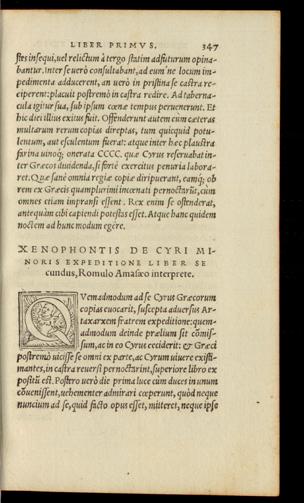 LIBER PRIMVS. 347
stes insequi, vel relictum à tergo statim adfuturum opina-
bantur. inter se uerò consultabant, ad eum'ne locum im-
pedimenta adducerent, an uerò in pristina se castra re-
ciperent: placuit postremò in castra redire. Ad taberna-
cula igitur sua, sub ipsum cœnæ tempus peruenerunt. Et
hic diei illius exitus fuit. Offenderunt autem cum cæteras
multarum rerum copias direptas, tum quicquid potu-
lentum, aut esculentum fuerat: atque inter hæc plaustra
farina uinoq; onerata CCCC. quæ Cyrus reseruabat in-
ter Græcos diuidenda, si fortè exercitus penuria labora-
ret. Quæ sanè omnia regiæ copiæ diripuerant, eamq; ob
rem ex Græcis quamplurimi incœnati pernoctarũt, cum
omnes etiam impransi essent. Rex enim se ostenderat,
antequàm cibi capiendi potestas esset. Atque hanc quidem
noctem ad hunc modum egere.
XENOPHONTIS DE CYRI MI-
NORIS EXPEDITIONE LIBER SE
cundus, Romulo Amasæo interprete.
QVemadmodum ad se Cyrus Græcorum
copias euocarit, suscepta aduersus Ar-
taxarxem fratrem expeditione: quem-
admodum deinde prælium sit cõmis-
sum, ac in eo Cyrus ceciderit: & Græci
postremò uicisse se omni ex parte, ac Cyrum uiuere existi-
mantes, in castra reuersi pernoctarint, superiore libro ex
positũ est. Postero uerò die prima luce cùm duces in unum
cõuenissent, uehementer admirari cœperunt, quòd neque
nuncium ad se, quid facto opus esset, mitteret, neque ipse